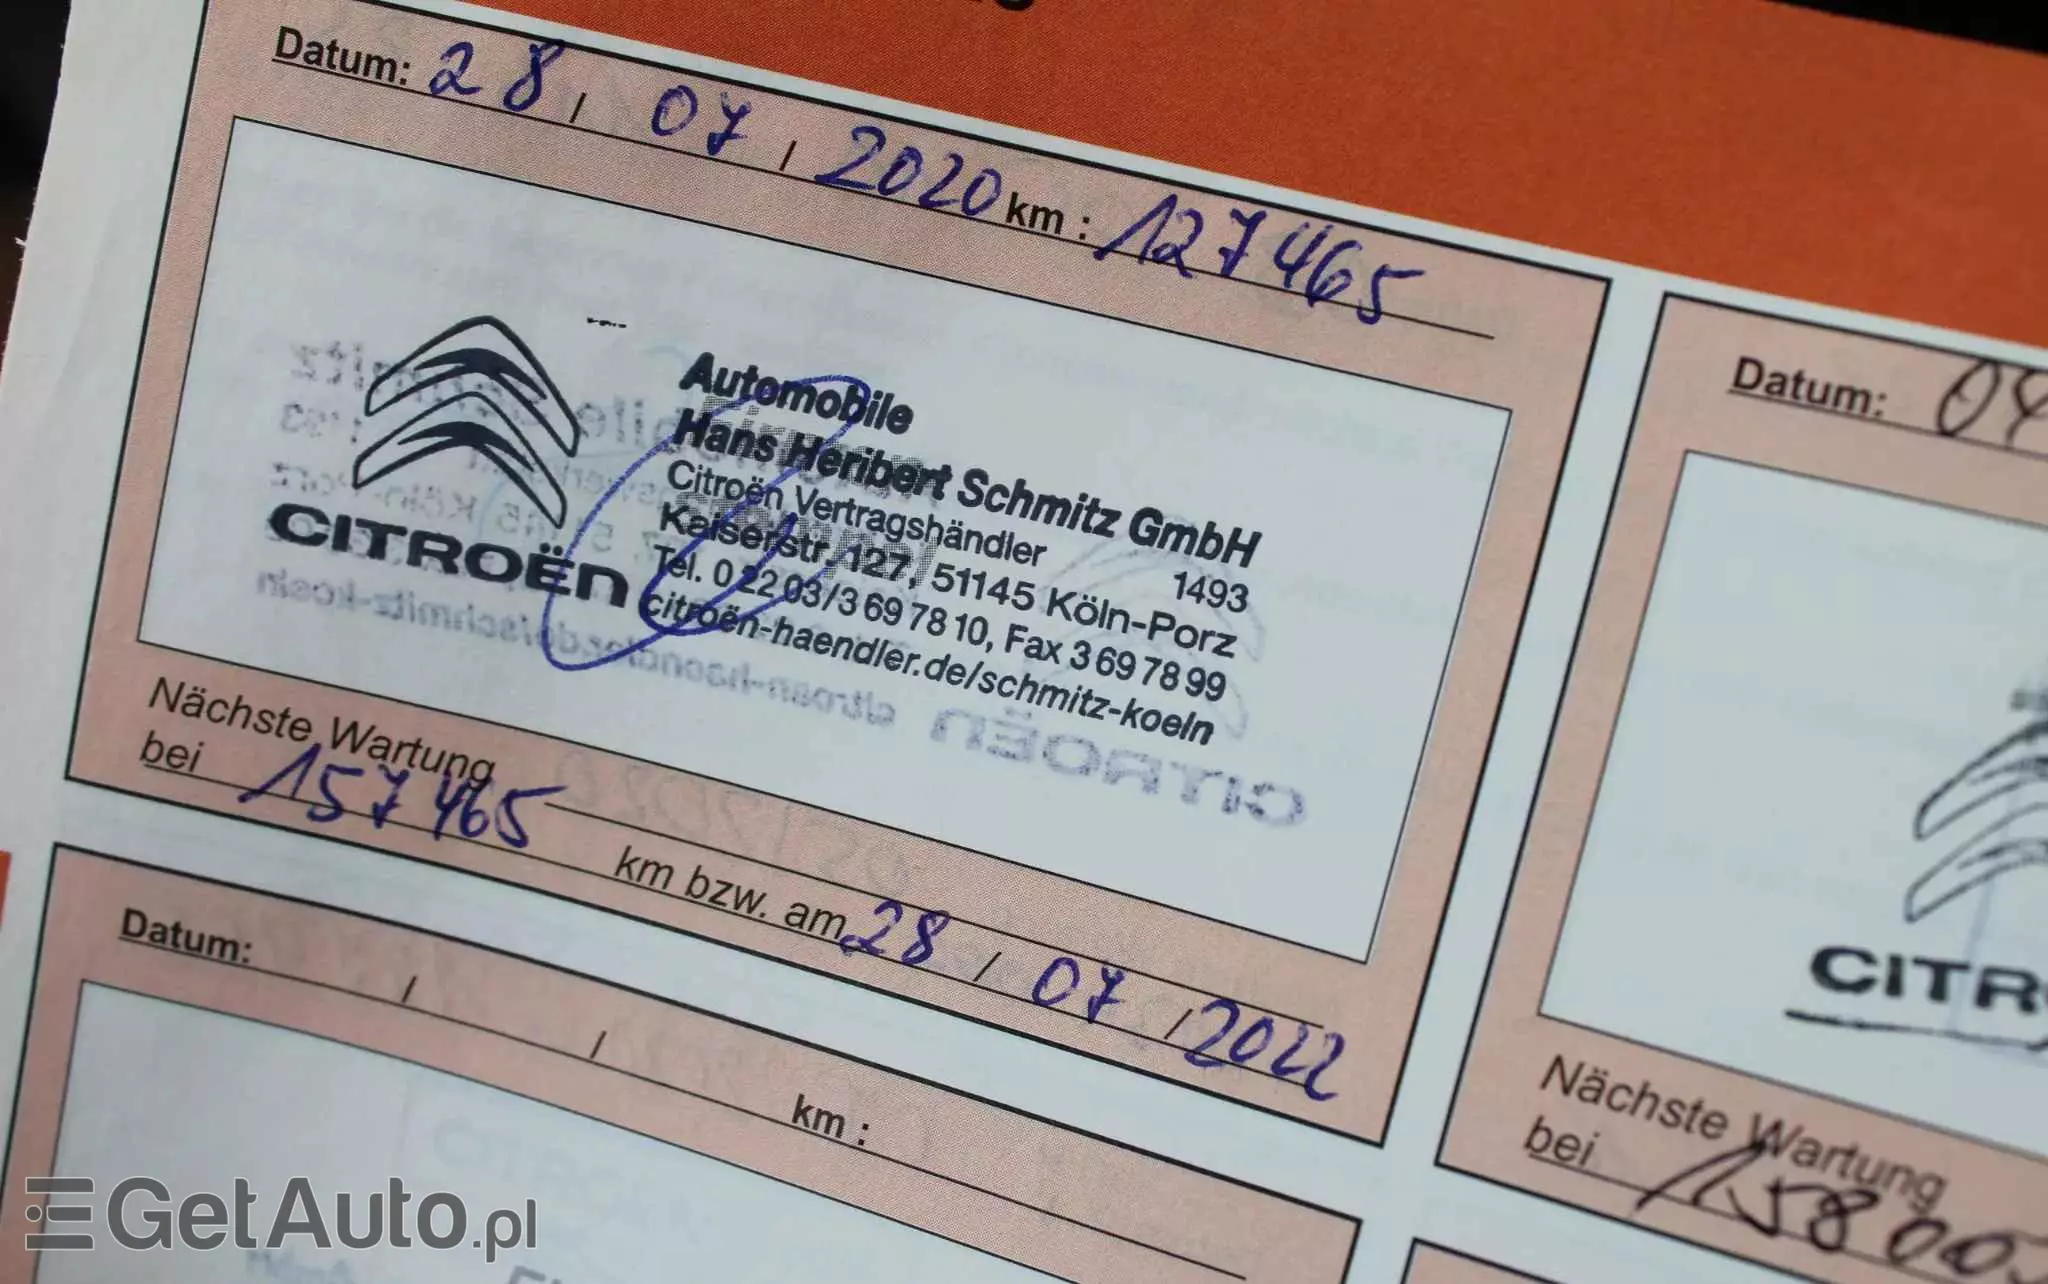 Datum: 28 / 07 / 2020 km : 127465
CITROËN
Automobile
Hans Heribert Schmitz GmbH
Citroën Vertragshändler 1493
Kaiserstr. 127, 51145 Köln-Porz
Tel. 0 22 03/3 69 78 10, Fax 3 69 78 99
citroën-haendler.de/schmitz-koeln
Nächste Wartung
bei 157465 km bzw. am 28 / 07 / 2022
Datum: / / km :
Datum: 04
CITR
Nächste Wartung
bei 158005
GetAuto.pl